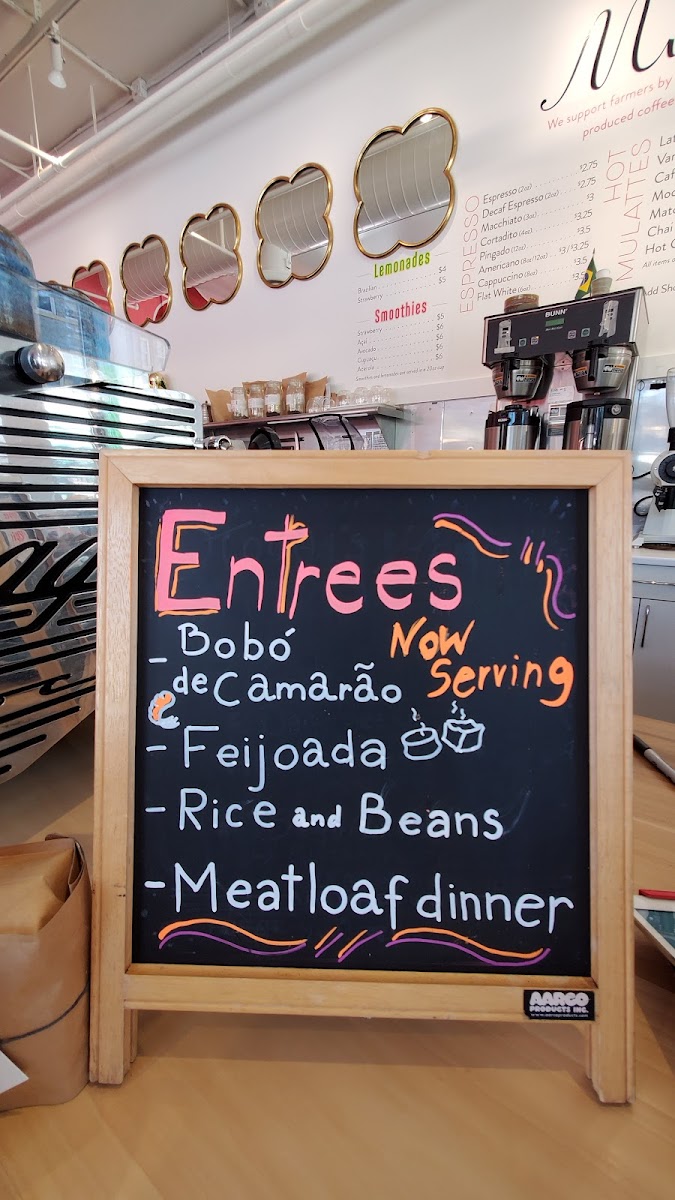 M
We support farmers by
produced coffee
ESPRESSO
Espresso (2oz) $2.75
Decaf Espresso (2oz) $2.75
Macchiato (3oz) $3
Cortadito (4oz) $3.25
Pingado (12oz) $3.5
Americano (8oz/12oz) $3 / $3.25
Cappuccino (8oz) $3.5
Flat White (6oz)
HOT
MULATTES
Lat
Van
Caf
Moc
Matc
Chai
Hot C
All items a
Add Sho
Lemonades
Brazilian $4
Strawberry $5
Smoothies
Strawberry $5
Açaí $6
Avocado $6
Cupuaçu $6
Acerola $6
Smoothies and lemonades are served in a 20 oz cup
BUNN
Entrees
Now
Serving
- Bobó
de Camarão
- Feijoada
- Rice and Beans
- Meatloaf dinner
AARCO
PRODUCTS INC.
www.aarcoproducts.com